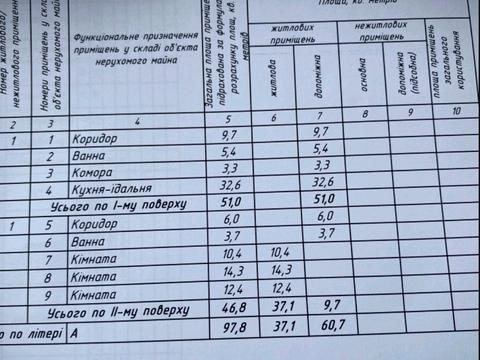 Площа, кв. метрів
Номер житлового/
нежитлового приміщення
Номери приміщень у складі
об'єкта нерухомого майна
Функціональне призначення
приміщень у складі об'єкта
нерухомого майна
Загальна площа приміщень,
підрахована за формулами
розрахунку площ, кв.
метрів
житлових
приміщень
нежитлових
приміщень
житлова
допоміжна
основна
допоміжна
(підсобна)
площа приміщень
загального
користування
2 3 4 5 6 7 8 9 10
1 1 Коридор 9,7 9,7
2 Ванна 5,4 5,4
3 Комора 3,3 3,3
4 Кухня-їдальня 32,6 32,6
Усього по І-му поверху 51,0 51,0
1 5 Коридор 6,0 6,0
6 Ванна 3,7 3,7
7 Кімната 10,4 10,4
8 Кімната 14,3 14,3
9 Кімната 12,4 12,4
Усього по ІІ-му поверху 46,8 37,1 9,7
о по літері А 97,8 37,1 60,7